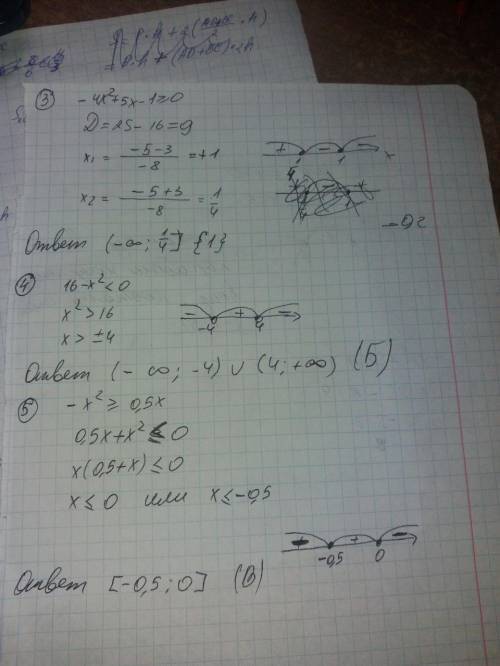 ③ -4x²+5x-1=0
D=25-16=9
x₁ = (-5-3)/(-8) = +1
+ - - x
1/4 1
x₂ = (-5+3)/(-8) = 1/4
Ответ (-∞; 1/4] {1}
④ 16-x²<0
x²>16
x>±4
- + -
-4 4
Ответ (-∞; -4) ∪ (4; +∞) (Б)
⑤ -x² ≥ 0,5x
0,5x+x² ≤ 0
x(0,5+x) ≤ 0
x ≤ 0 или x ≤ -0,5
- + -
-0,5 0
Ответ [-0,5; 0] (В)